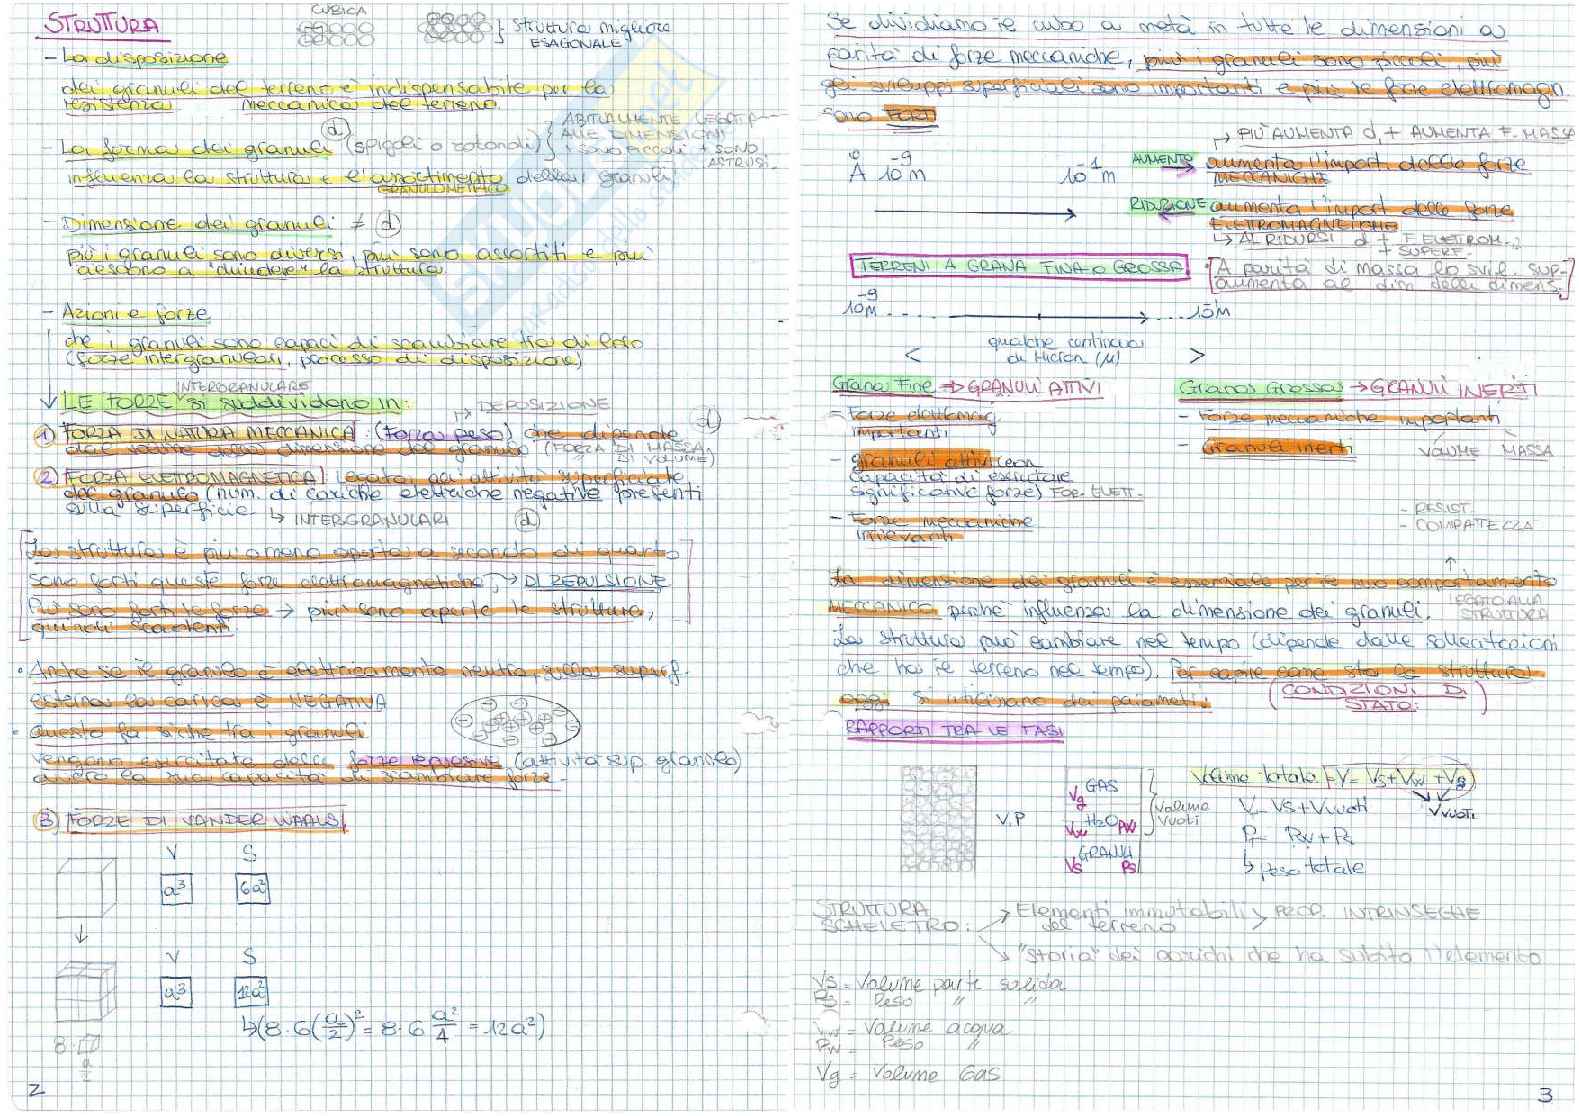 STRUTTURA
CUBICA
Struttura migliore
ESAGONALE
- La disposizione
dei granuli del terreno è indispensabile per la
resistenza meccanica del terreno.
- La forma dei granuli (spigoli o rotondi)
d
ABITUALMENTE LEGATA
ALLE DIMENSIONI
+ SONO PICCOLI + SONO
influenza la struttura e l'assortimento dei granuli
GRANULOMETRICO
- Dimensione dei granuli ≠ d
più i granuli sono diversi, più sono assortiti e più
riescono a "chiudere" la struttura.
- Azioni e forze
che i granuli sono capaci di scambiare tra di loro
(forze intergranulari, processo di disposizione)
INTERGRANULARE
LE FORZE si suddividono in:
↦ DEPOSIZIONE
1) FORZA DI NATURA MECCANICA: (forza peso) che dipende
d
dal volume della dimensione del granulo (FORZA DI MASSA
" DI VOLUME)
2) FORZA ELETROMAGNETICA legata all'attività superficiale
del granulo (num. di cariche elettriche negative presenti
sulla superficie ↳ INTERGRANULARI d
La struttura è più o meno aperta a secondo di quanto
sono forti queste forze elettromagnetiche, → DI REPULSIONE
Più sono forti le forze → più sono aperte le strutture,
quindi scadenti.
• Anche se il granulo è elettricamente neutro, sulla superf.
esterna la carica è NEGATIVA
• Questo fa sì che tra i granuli
vengano esercitate delle forze repulsive (attività sup. granulo)
ovvero la sua capacità di scambiare forze.
3) FORZE DI VANDER WAALS
V S
a³ 6a²
V S
a³ 12a²
↳(8·6(a/2)² = 8·6 a²/4 = 12a²)
8·
a/2
2
Se dividiamo il cubo a metà in tutte le dimensioni a
parità di forze meccaniche, più i granuli sono piccoli, più
gli sviluppi superficiali sono importanti e più le forze elettromagn.
sono FORTI
↦ PIÙ AUMENTA d, + AUMENTA F. MASSA
Å 10⁻⁹m 10⁻¹m
AUMENTO → aumenta l'import delle forze
MECCANICHE
RIDUZIONE aumenta l'import delle forze
ELETROMAGNETICHE
↳ AL RIDURSI d + F. ELETTROM.
+ SUPERF.
TERRENI A GRANA FINA o GROSSA
A parità di massa lo svil. sup.
aumenta al dim delle dimens.
10⁻⁹M 10⁻¹M
< qualche centinaio >
di Micron (μ)
Grana Fine ⇒ GRANULI ATTIVI
Grana Grossa → GRANULI INERTI
- Forze elettromag.
importanti
- Forze meccaniche importanti
- granuli attivi (con
capacità di esercitare
significative forze) FOR. ELETT.
- Granuli inerti
VOLUME MASSA
- Forze meccaniche
irrilevanti
- RESIST.
- COMPATEZZA
La dimensione dei granuli è essenziale per il suo comportamento
MECCANICO perché influenza la dimensione dei granuli.
LEGATO ALLA
STRUTTURA
La struttura può cambiare nel tempo (dipende dalle sollecitazioni
che ha il terreno nel tempo). Per capire come sta la struttura
oggi si utilizzano dei parametri.
(CONDIZIONI DI
STATO:)
RAPPORTI TRA LE FASI
V,P
Vg GAS
Vw H2O Pw
Vs GRANULI Ps
Volume
Vuoti
Volume totale = V = Vs+Vw+Vg
Vvuoti
V= Vs+Vvuoti
P= Pw + Ps
↳ peso totale
STRUTTURA
SCHELETRO:
Elementi immutabili > PROP. INTRINSECHE
del terreno
"Storia" dei carichi che ha subito l'elemento
Vs = Volume parte solida
Ps = Peso " "
Vw = Volume acqua
Pw = Peso "
Vg = Volume Gas
3